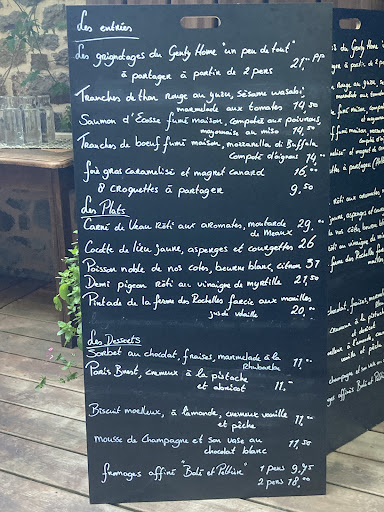 Les entrées
Les grignotages du Genty Home "un peu de tout"
à partager à partir de 2 pers 21,- PP
Tranches de thon rouge au yuzu, sésame wasabi
marmelade aux tomates 14,50
Saumon d'Écosse fumé maison, compotée aux poivrons,
mayonnaise au miso 14,50
Tranches de boeuf fumé maison, mozzarella di Buffala
Compotée d'oignons 14,-
foie gras caramélisé et magret canard 16,00
8 croquettes à partager 9,50
Les Plats
Carré de Veau Rôti aux aromates, moutarde 29,00
de Meaux
Cocotte de lieu jaune, asperges et courgettes 26
Poisson noble de nos cotes, beurre blanc, citron 37
Demi pigeon rôti au vinaigre de myrtille 21,50
Pintade de la ferme des Rochelles farcie aux morilles
jus de volaille 20,00
Les Desserts
Sorbet au chocolat, fraises, marmelade à la
Rhubarbe 11,00
Paris Brest, crémeux à la pistache
et abricot 11,-
Biscuit moelleux, à l'amande, crémeux vanille
et pêche 11,00
mousse de Champagne et son vase au
chocolat blanc 11,50
fromages affiné 1 pers 9,45
2 pers 18,00